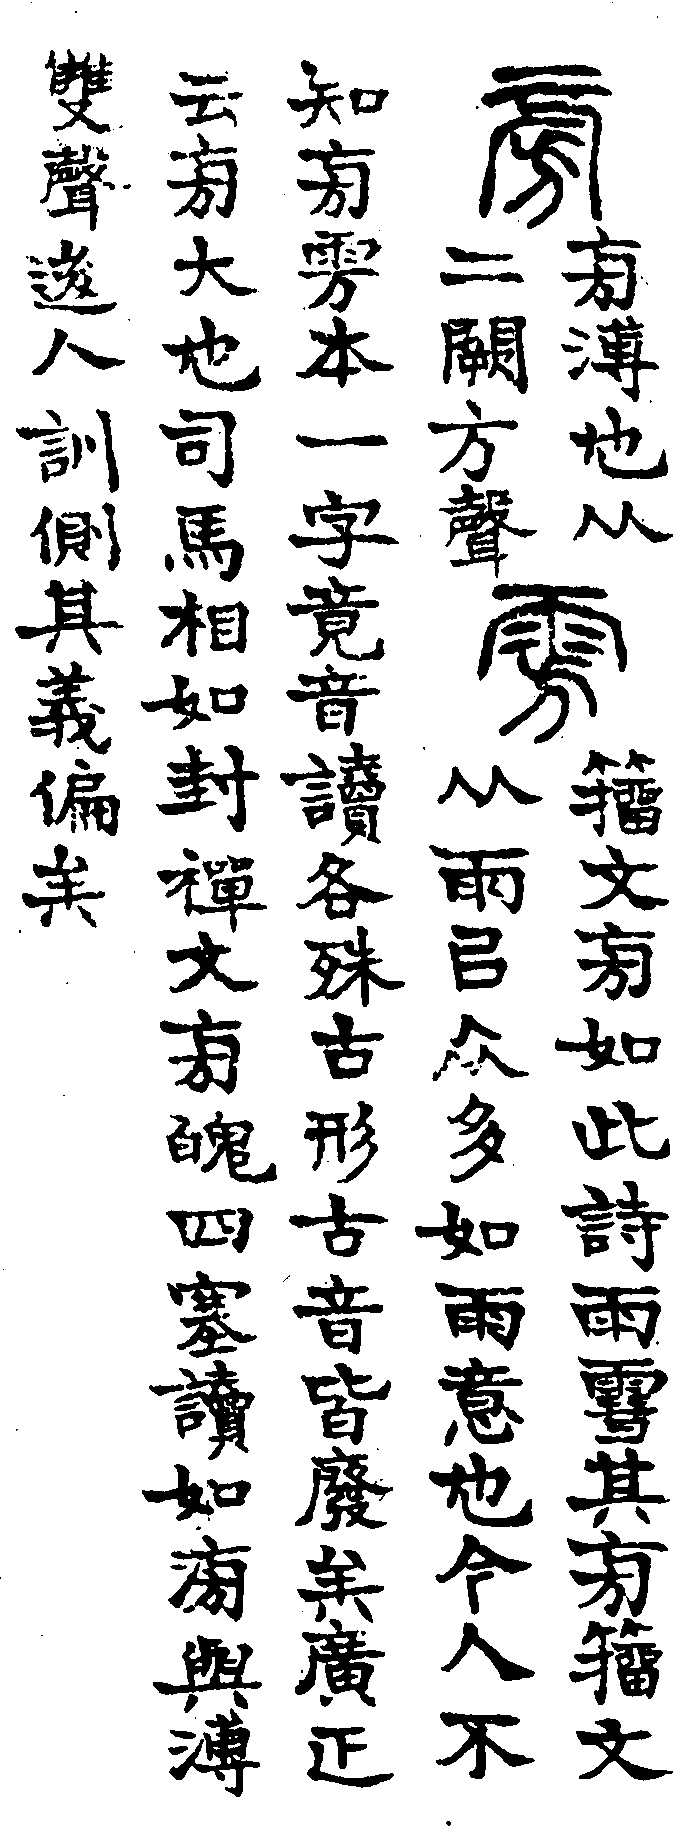 旁
旁溥也从
二闕方聲
雱
籒文旁如此詩雨雪其旁籒文
从雨㠯众多如雨意也今人不
知旁雱本一字竟音讀各殊古形古音皆廢矣廣疋
云旁大也司馬相如封禪文旁魄四塞讀如滂與溥
雙聲後人訓側其義偏矣